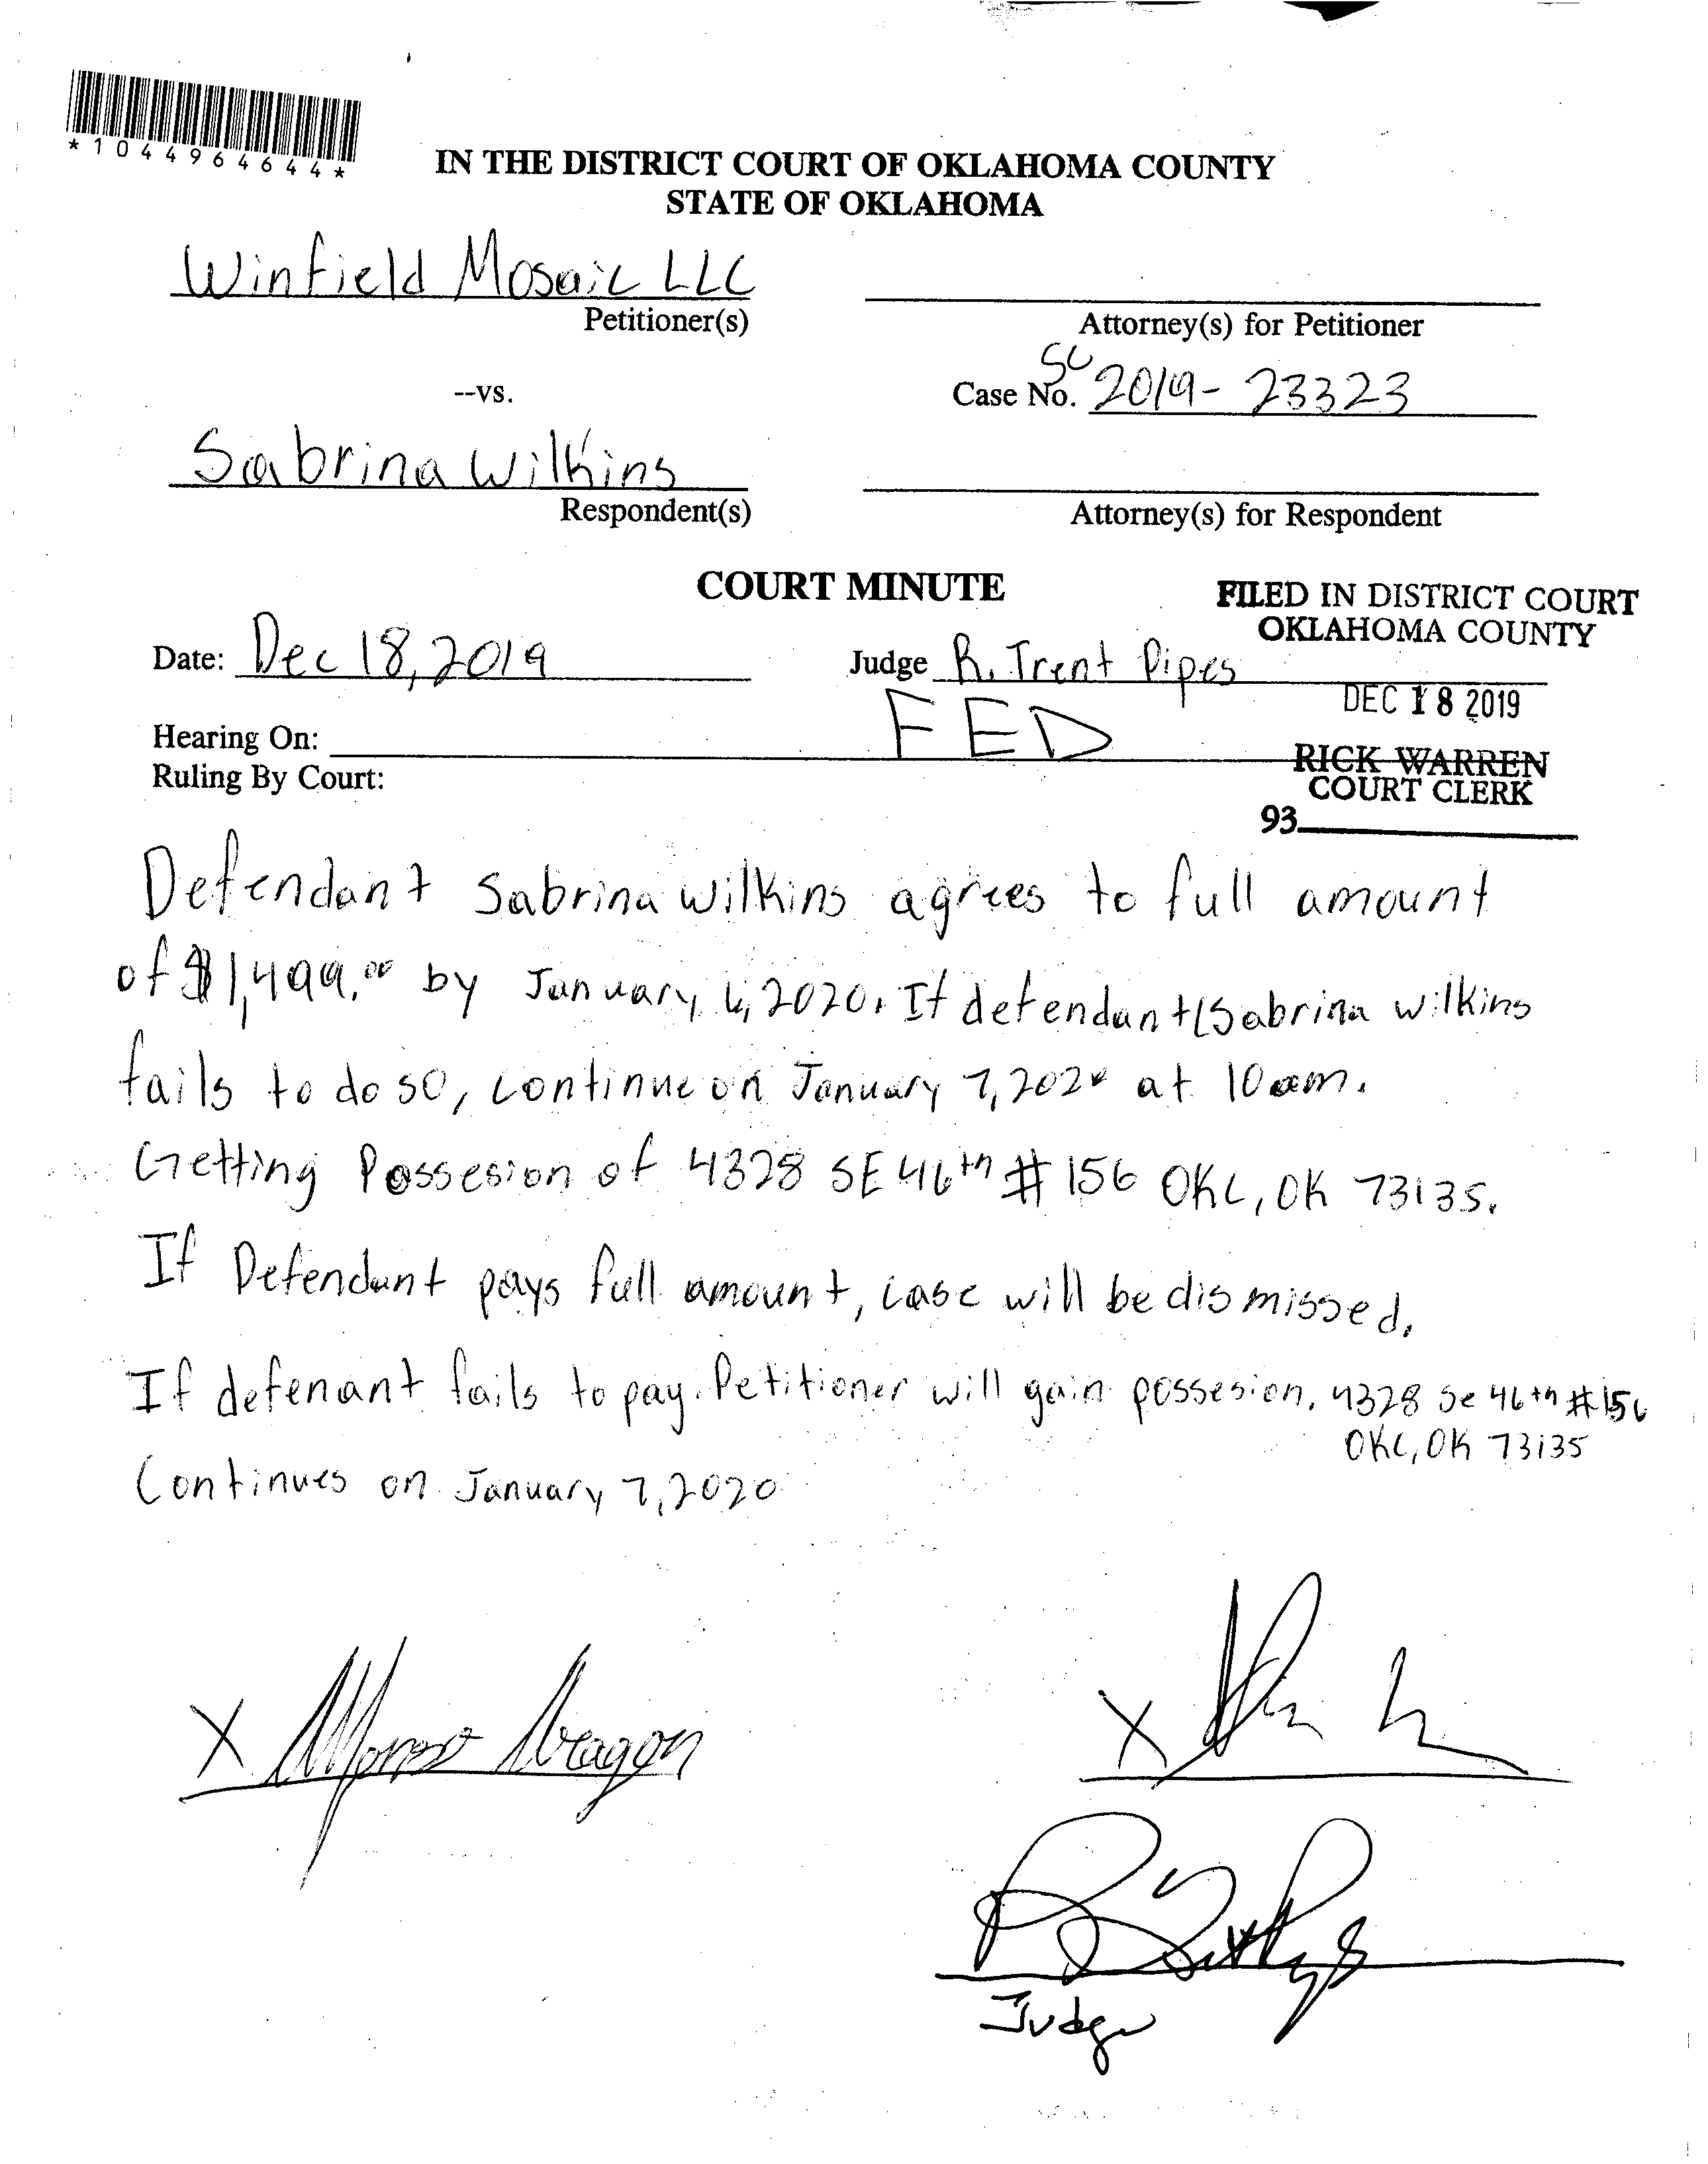 *1044964644*
IN THE DISTRICT COURT OF OKLAHOMA COUNTY
STATE OF OKLAHOMA
Winfield Mosaic LLC
Petitioner(s)
Attorney(s) for Petitioner
--vs.
Case No. SC 2019-23323
Sabrina Wilkins
Respondent(s)
Attorney(s) for Respondent
COURT MINUTE
FILED IN DISTRICT COURT
OKLAHOMA COUNTY
Date: Dec 18, 2019
Judge R. Trent Pipes
DEC 18 2019
Hearing On: FED
RICK WARREN
COURT CLERK
Ruling By Court:
93
Defendant Sabrina Wilkins agrees to full amount
of $1,499.00 by January 6, 2020. If defendant Sabrina Wilkins
fails to do so, continue on January 7, 2020 at 10am.
Getting Possesion of 4328 SE 46th #156 OKC, OK 73135.
If Defendant pays full amount, case will be dismissed.
If defenant fails to pay. Petitioner will gain possesion. 4328 Se 46th #156
OKC, OK 73135
Continues on January 7, 2020
X Alfonso Aragon
X
Judge